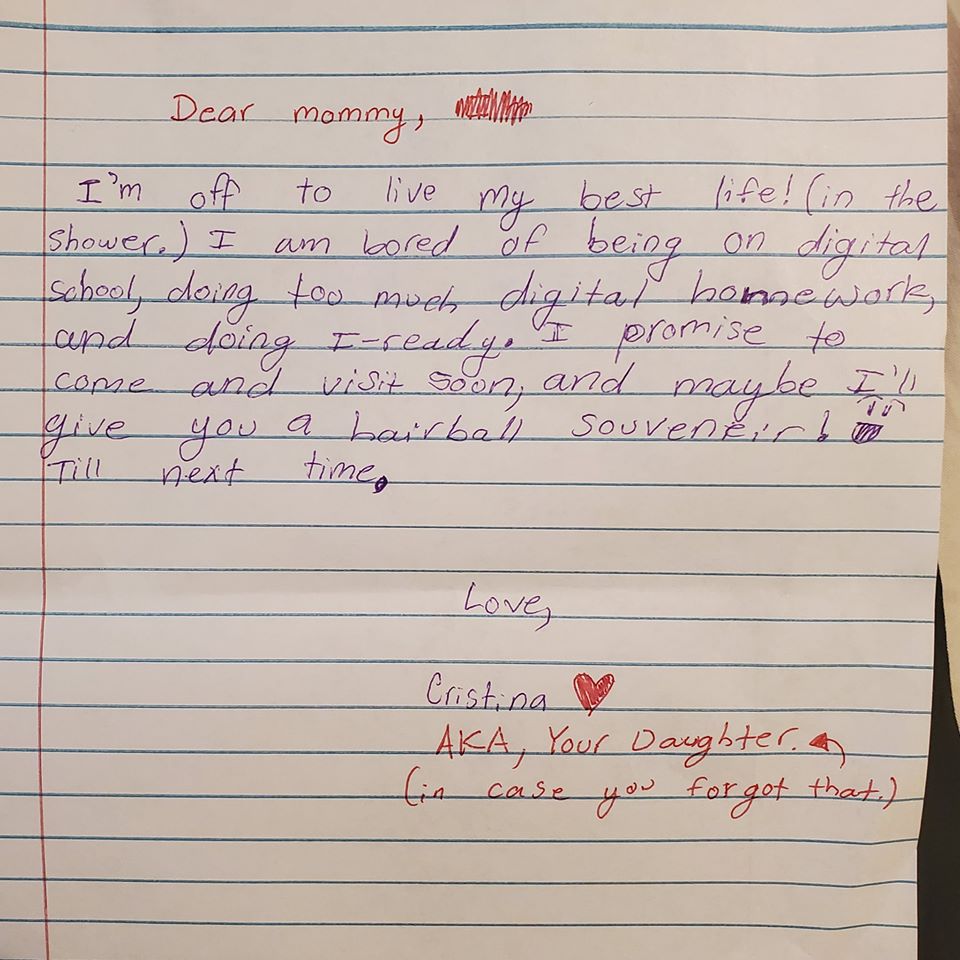 Dear mommy,
I'm off to live my best life! (in the
shower.) I am bored of being on digital
school, doing too much digital homework,
and doing I-ready. I promise to
come and visit soon, and maybe I'll
give you a hairball souveneir!
Till next time,
Love,
Cristina
AKA, Your Daughter.
(in case you forgot that.)